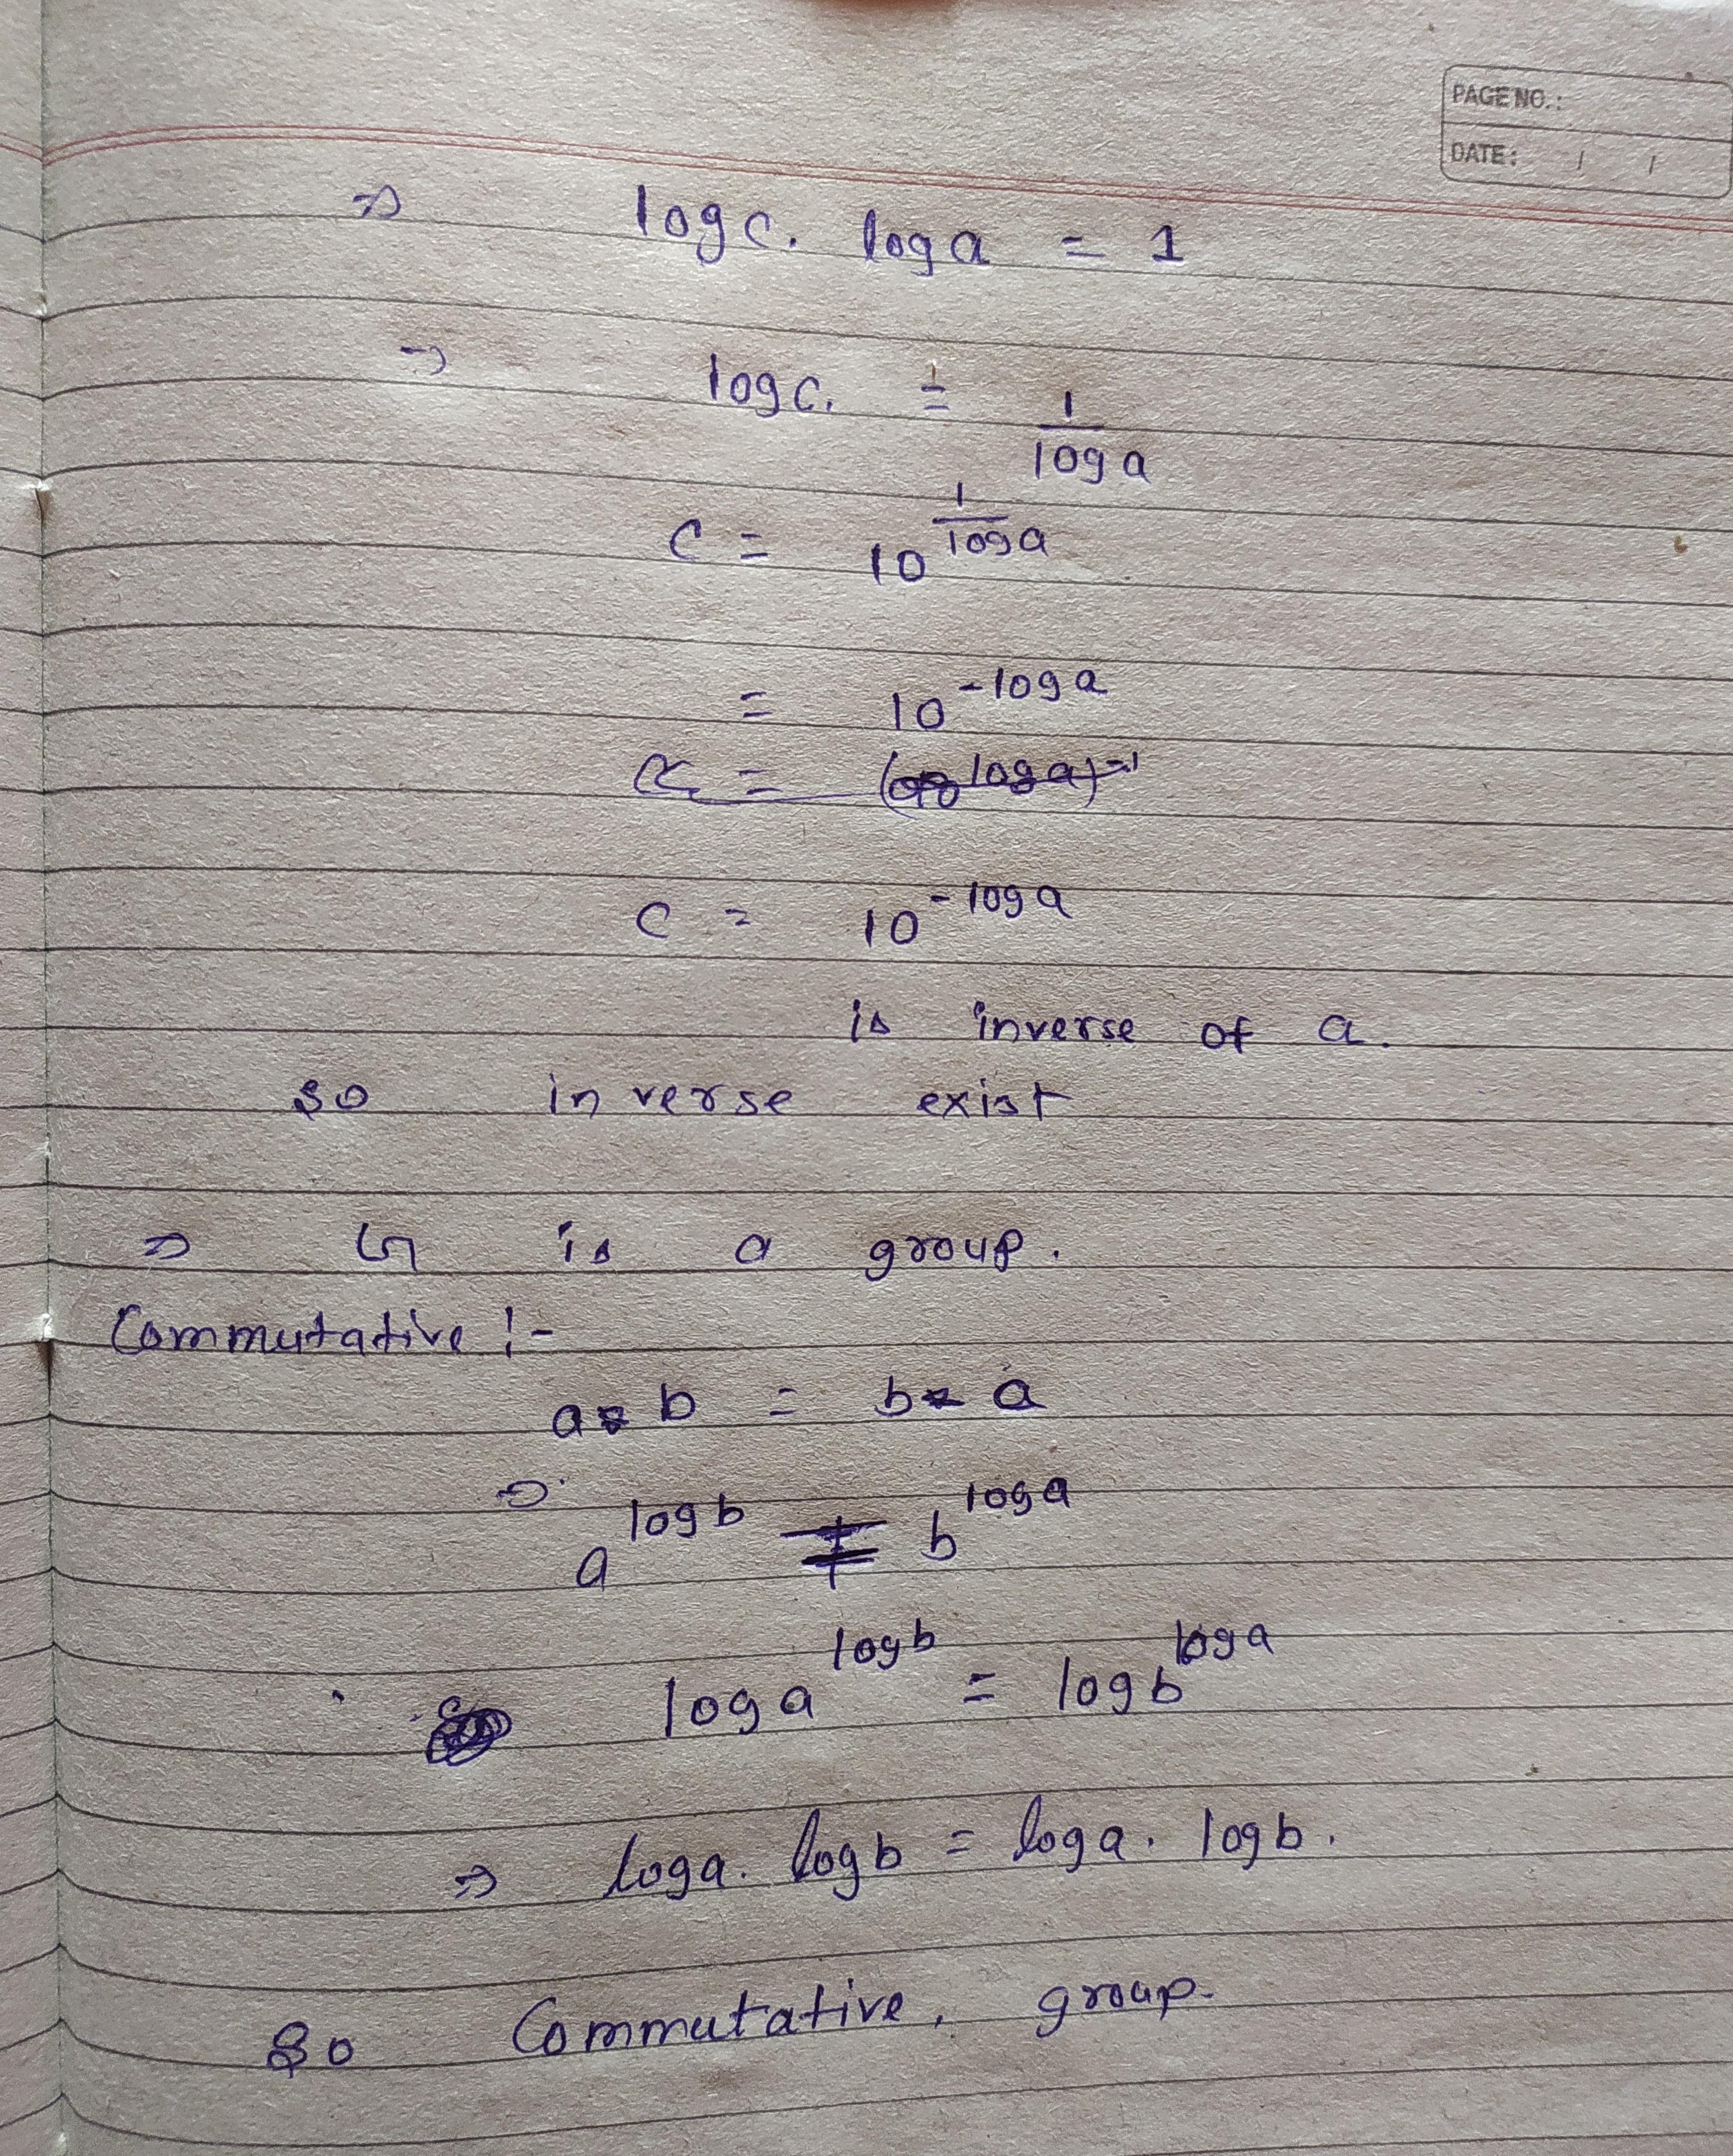 PAGE NO.:
DATE: / /
⇒ log c. log a = 1
⇒ log c. = 1/log a
c = 10^(1/log a)
= 10^(-log a)
c = 10^(-log a)
is inverse of a.
so inverse exist
⇒ G is a group.
Commutative :-
a * b = b * a
⇒ a^(log b) = b^(log a)
log a^(log b) = log b^(log a)
⇒ log a. log b = log a. log b.
So Commutative, group.